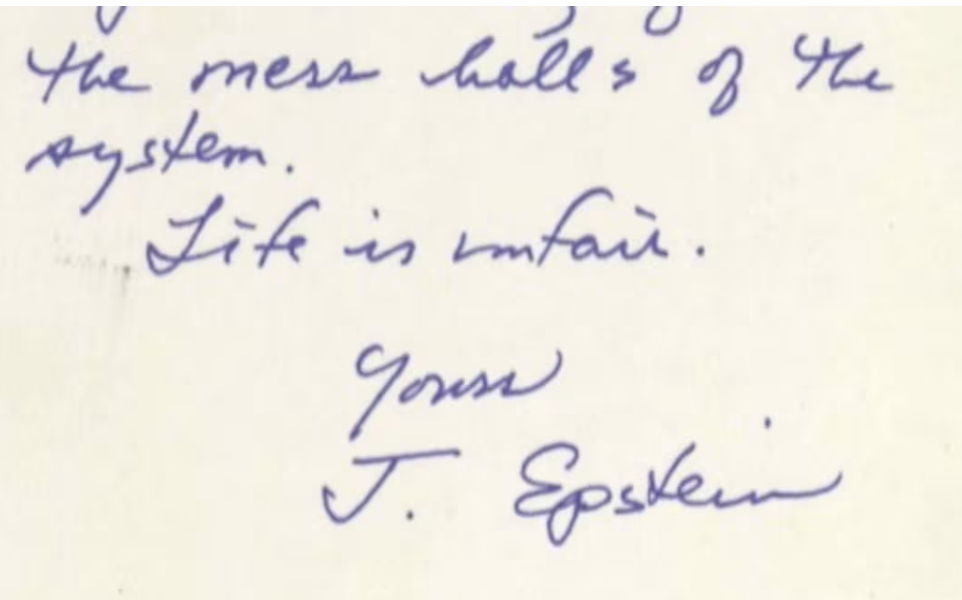 the mess halls of the
system.
Life is unfair.
Yours
J. Epstein